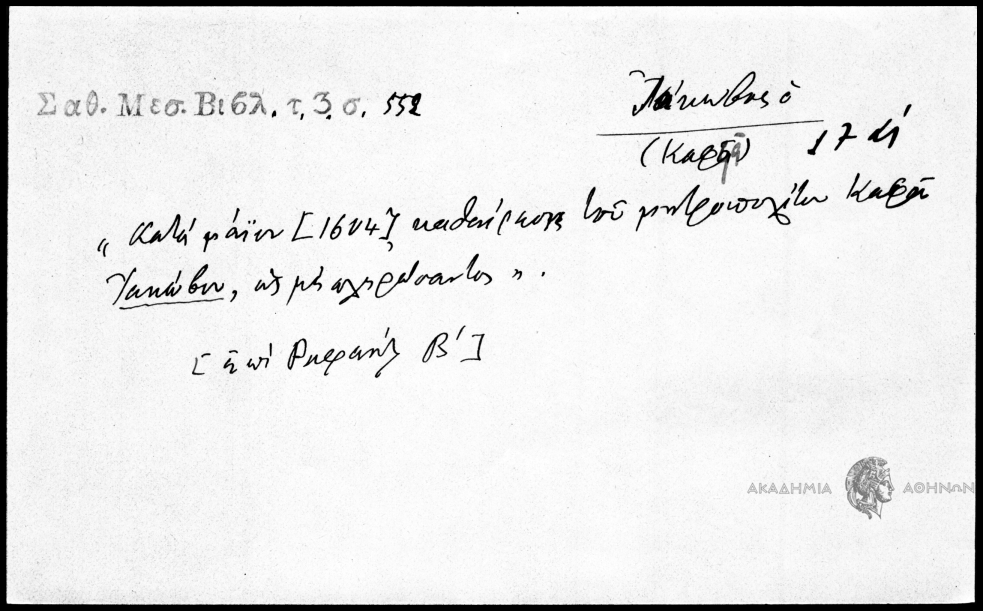 Σαθ. Μεσ. Βιβλ. τ. 3 σ. 552
Ἰάκωβος ὁ
(Καφᾶ) 17 αἰ
„ Κατά μάϊον [1604] καθαίρεσις τοῦ μητροπολίτου Καφᾶ
Ἰακώβου, ὡς μή πληρώσαντος ".
[ἐπί Ραφαήλ Β΄]
ΑΚΑΔΗΜΙΑ ΑΘΗΝΩΝ